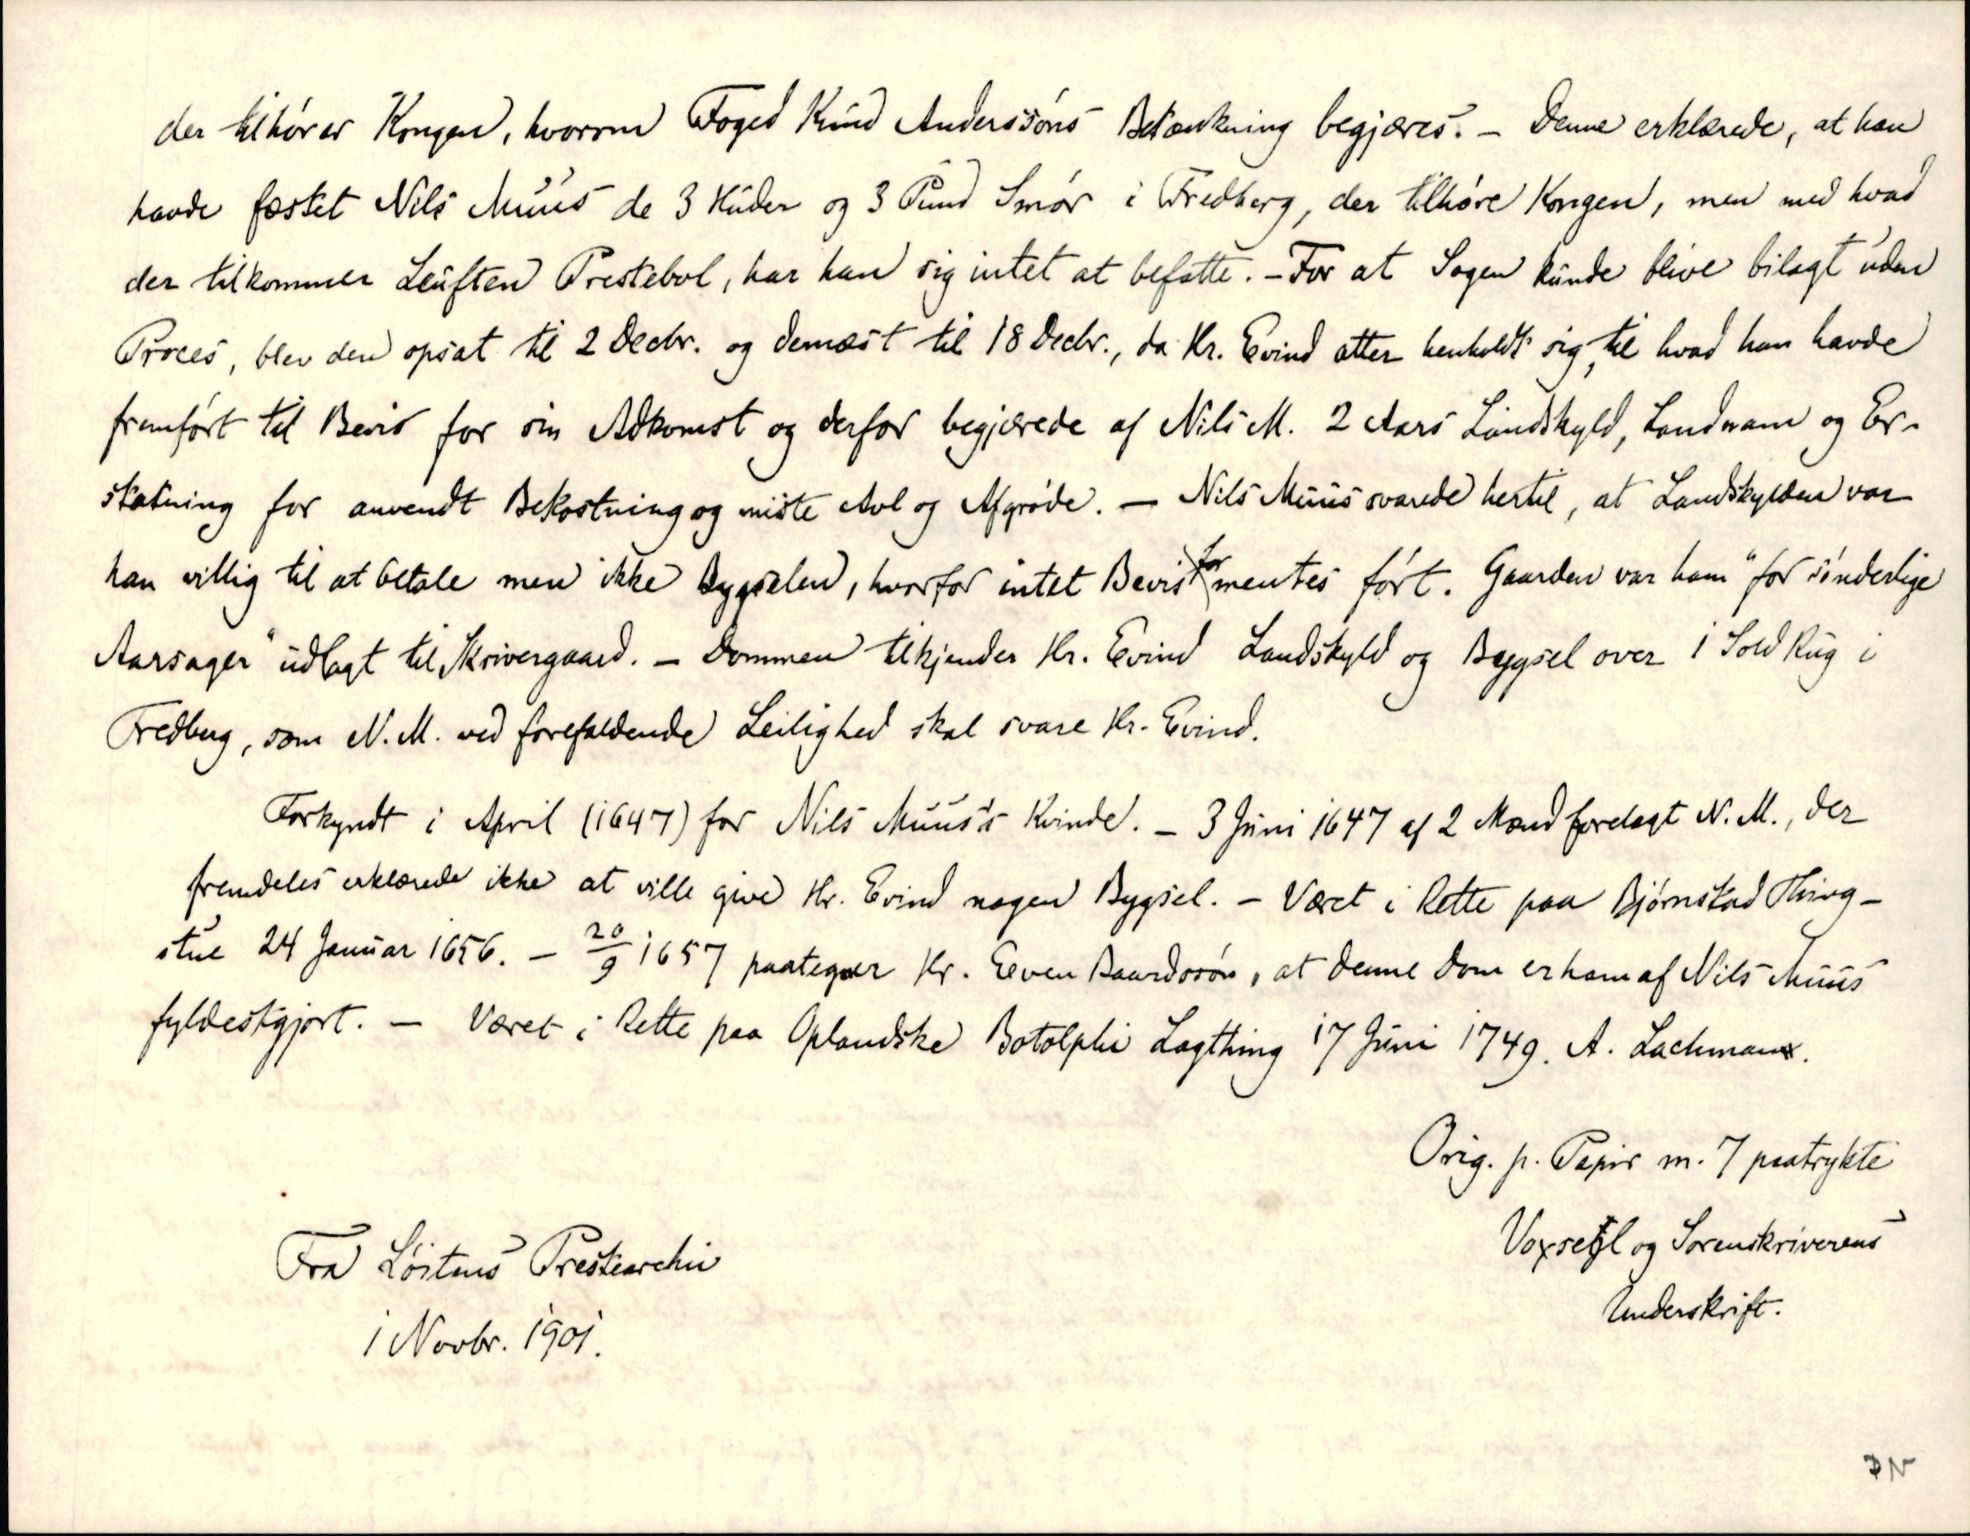 der tilhörer Kongen, hvorom Foged Knud Anderssöns Betænkning begjæres. – Denne erklærede, at han
havde fæstet Nils Muus de 3 Huder og 3 Pund Smör i Fredberg, der tilhöre Kongen, men med hvad
der tilkommer Leuften Prestebol, har han sig intet at befatte. – For at Sagen kunde blive bilagt uden
Proces, blev den opsat til 2 Decbr. og dernæst til 18 Decbr., da Hr. Evind atter henholdt sig til hvad han havde
fremfört til Bevis for sin Adkomst og derfor begjærede af Nils M. 2 Aars Landskyld, Landnam og Er-
statning for anvendt Bekostning og miste Avl og Afgröde. – Nils Muus svarede hertil, at Landskylden var
han villig til at betale men ikke Bygselen, hvorfor intet Bevis for mentes fört. Gaarden var ham "for sönderlige
Aarsager" udlagt til Skrivergaard. – Dommen tilkjender Hr. Evind Landskyld og Bygsel over 1 Sold Rug i
Fredberg, som N. M. ved forefaldende Leilighed skal svare Hr. Evind.
Forkyndt i April (1647) for Nils Muus's Kvinde. – 3 Juni 1647 af 2 Mænd forelagt N. M., der
fremdeles erklærede ikke at ville give Hr. Evind nogen Bygsel. – Været i Rette paa Björnstad Thing-
stue 24 Januar 1656. – 20/9 1657 paategner Hr. Even Baardssön, at denne Dom er ham af Nils Muus
fyldestgjort. – Været i Rette paa Oplandske Botolphi Lagthing 17 Juni 1749. A. Lachman.
Orig. p. Papir m. 7 paatrykte
Voxsegl og Sorenskriverens
Underskrift.
Fra Löitens Prestearchiv
i Novbr. 1901.
DN